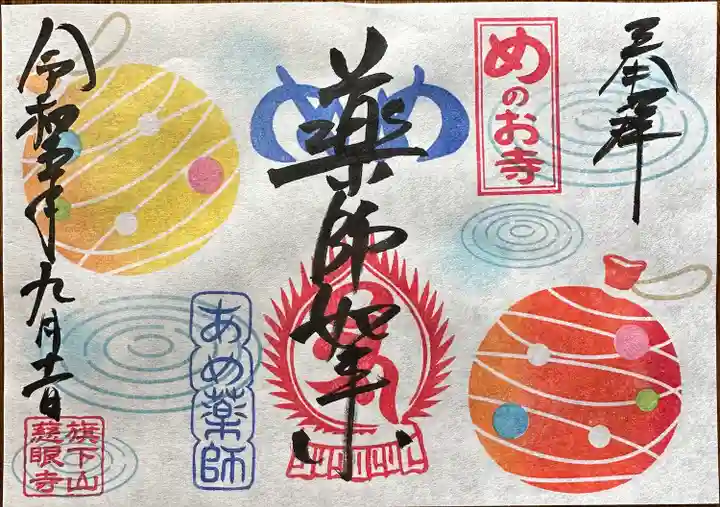 奉拝
めのお寺
め
薬師如来
あめ薬師
令和
年九月
旗下山
慈眼寺